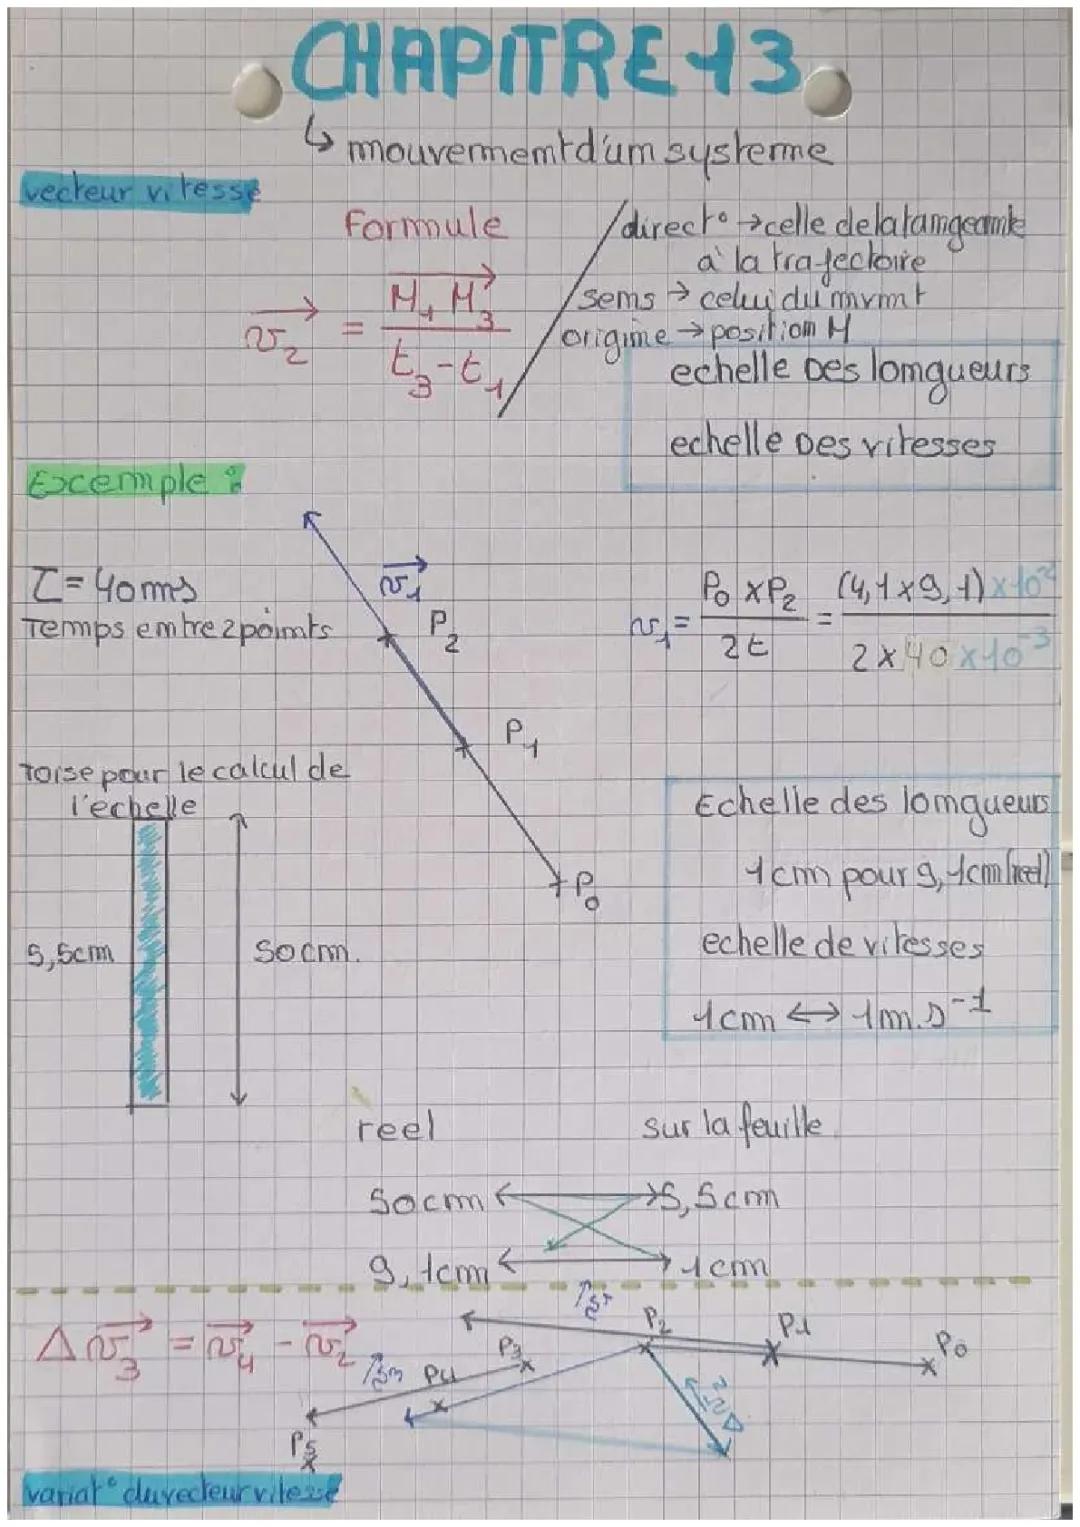 CHAPITRE 13
↳ mouvement d'um systeme
vecteur vitesse
Formule
v₂ = M₁M₃ / t₃-t₁
direct° → celle de la tamgeamte
à la trajectoire
sems → celui du mvmt
origime → position M
echelle Des lomgueurs
echelle Des vitesses
Excemple :
τ = 40ms
Temps emtre 2 poimts
v₁
P₂
P₁
P₀
v₁ = P₀ x P₂ / 2t = (4,1 x 9,1) x10⁻² / 2 x 40 x10⁻³
Toise pour le calcul de
l'echelle
5,5cm
50cm.
Echelle des lomgueurs
1cm pour 9,1cm (reel)
echelle de vitesses
1cm ↔ 1m.s⁻¹
reel sur la feuille
50cm 5,5cm
9,1cm 1cm
Δv₃ = v₄ - v₂
P₂ P1 P₀
P₃
P4
P5
variat° du vecteur vitesse